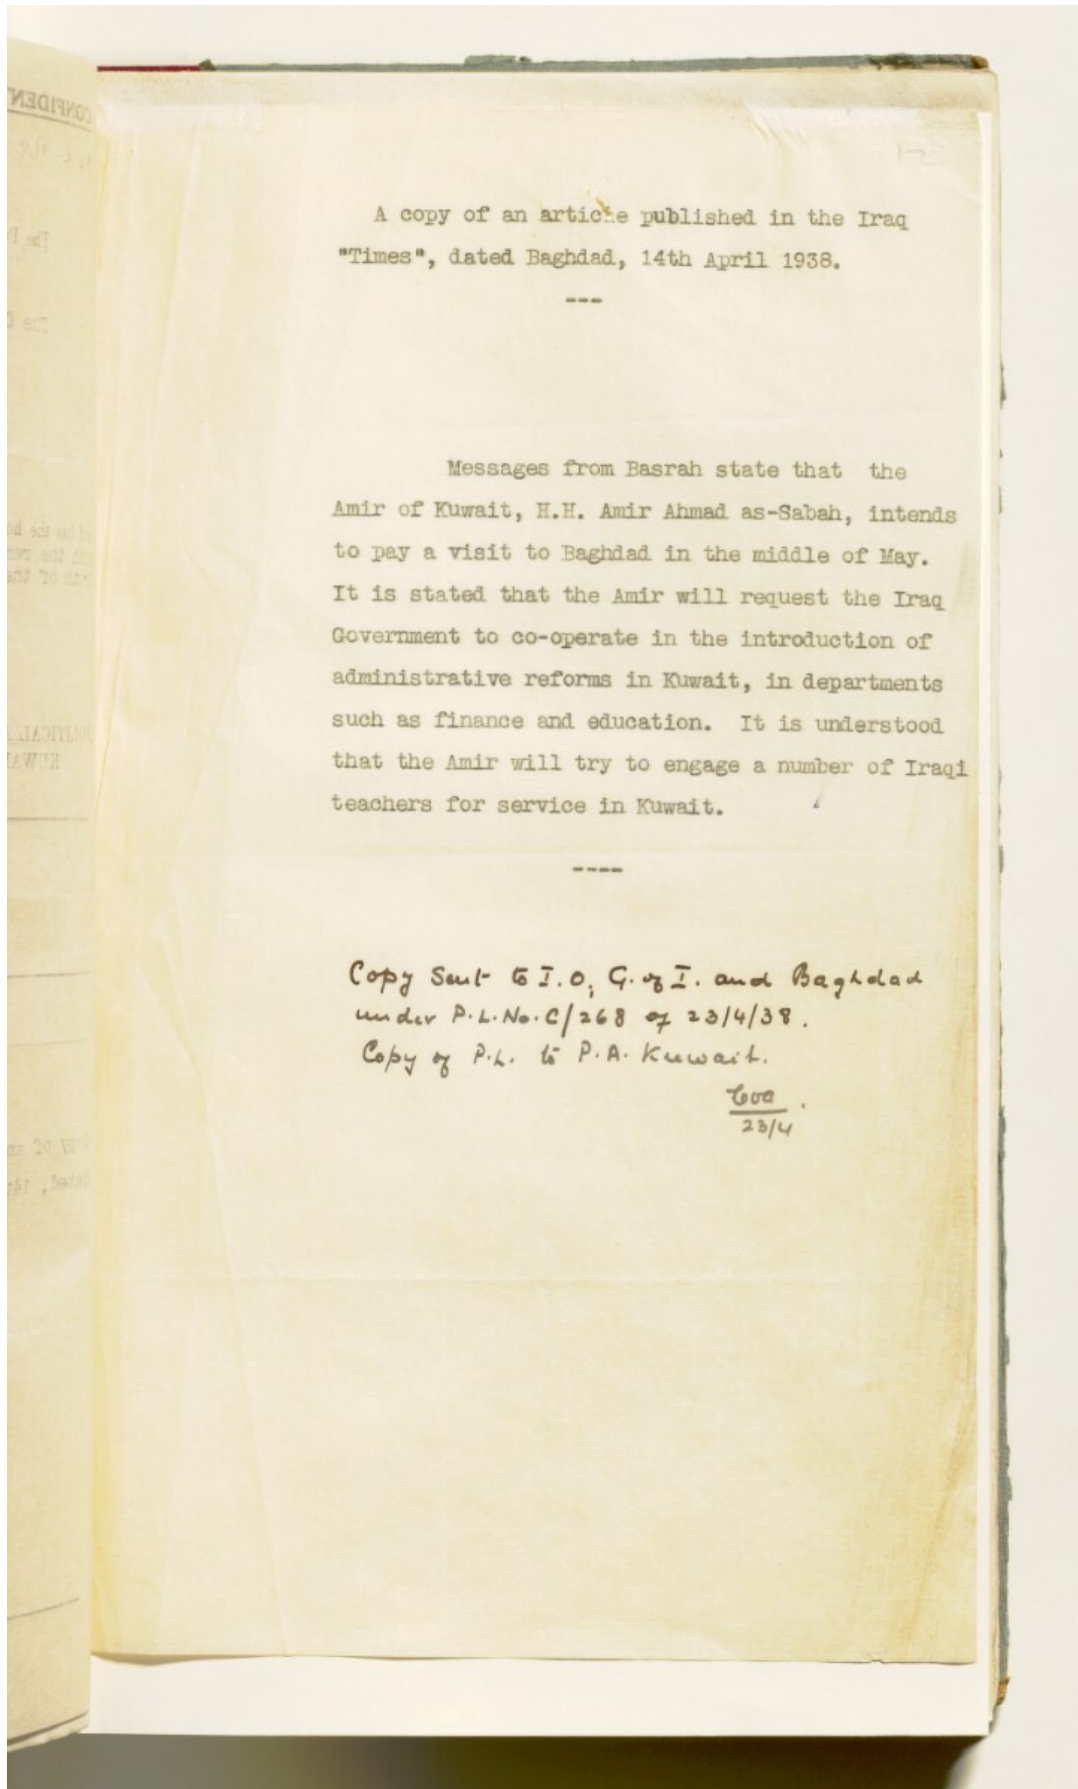 A copy of an article published in the Iraq
"Times", dated Baghdad, 14th April 1938.
---
Messages from Basrah state that the
Amir of Kuwait, H.H. Amir Ahmad as-Sabah, intends
to pay a visit to Baghdad in the middle of May.
It is stated that the Amir will request the Iraq
Government to co-operate in the introduction of
administrative reforms in Kuwait, in departments
such as finance and education. It is understood
that the Amir will try to engage a number of Iraqi
teachers for service in Kuwait.
----
Copy Sent to I.O, G. of I. and Baghdad
under P.L. No. C/268 of 23/4/38.
Copy of P.L. to P.A. Kuwait.
23/4